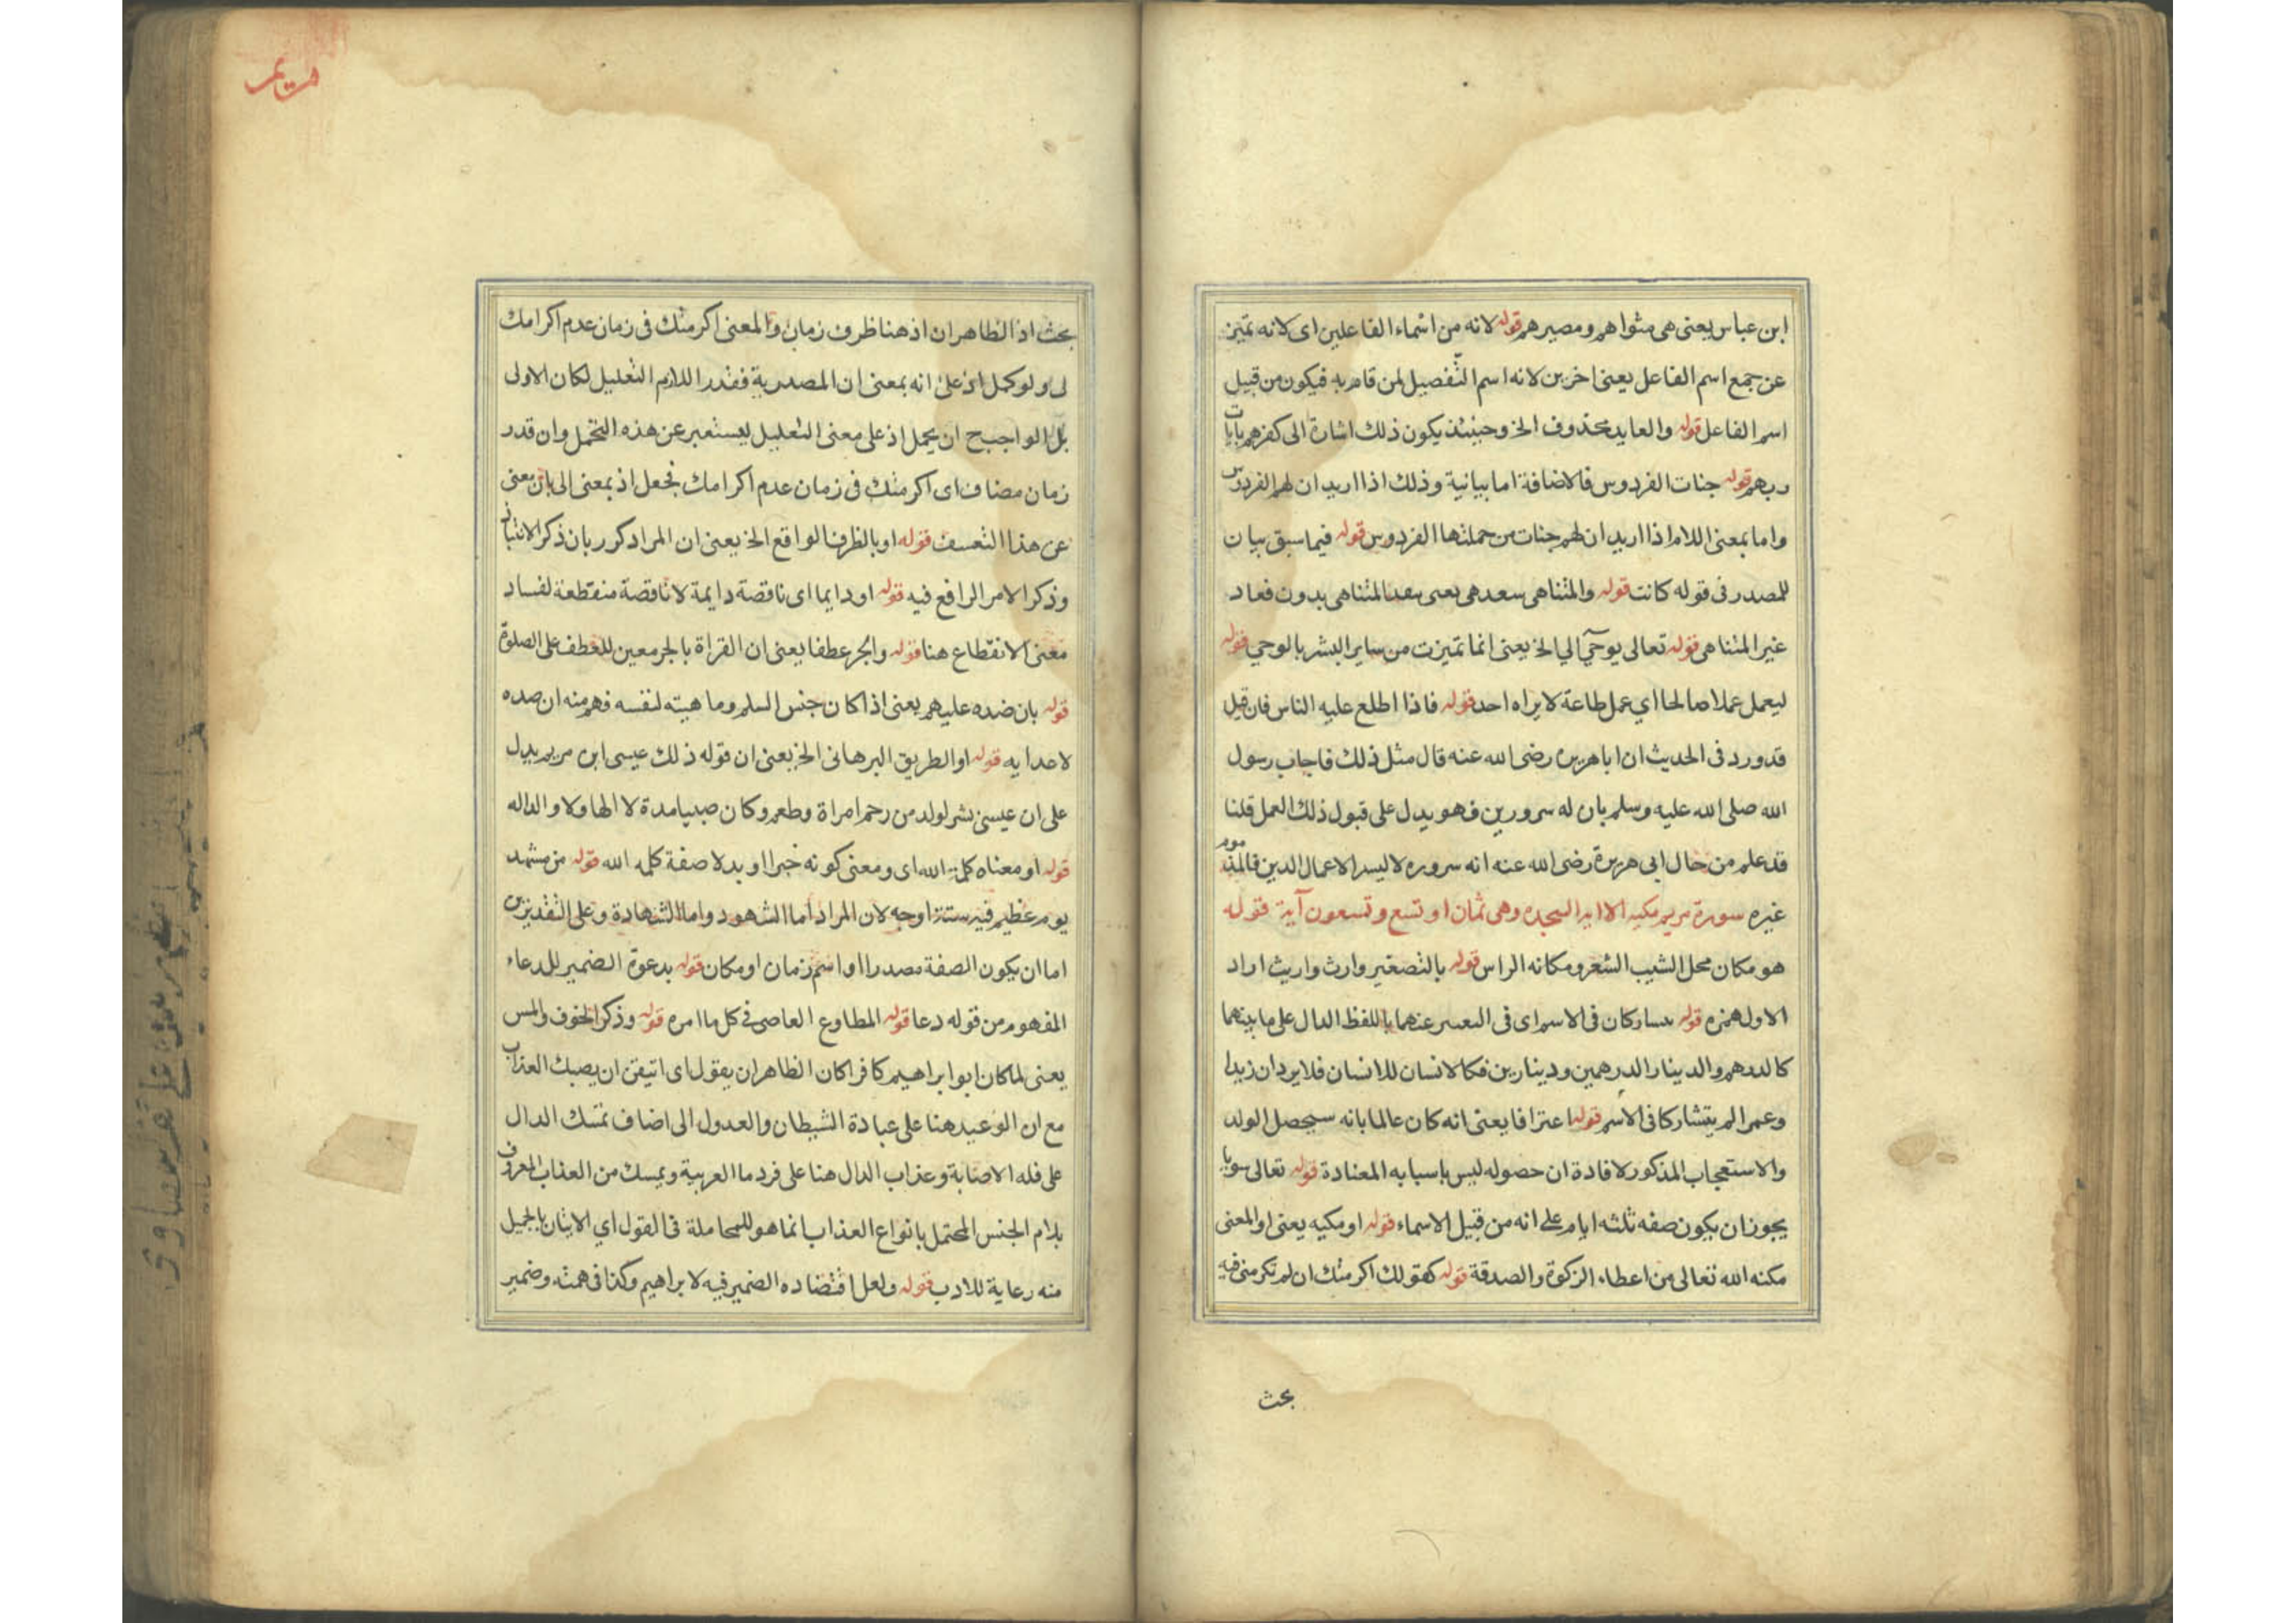 ابن عباس يعنى هى مثواهم ومصيرهم قوله لانه من اسماء الفاعلين اى لانه تميز
عن جمع اسم الفاعل يعنى اخرين لانه اسم التفصيل لمن قام به فيكون من قبيل
اسم الفاعل قوله والعايد محذوف الخ وحينئذ يكون ذلك اشارة الى كفرهم بايات
ربهم قوله جنات الفردوس فالاضافة اما بيانية وذلك اذا اريد ان لهم الفردوس
واما بمعنى اللام اذا اريد ان لهم جنات من جملتها الفردوس قوله فيما سبق بيان
للمصدر فى قوله كانت قوله والمتناهى ىىعدهى يعنى ىىعد المتناهى بدون فعاد
غير المتناهى قوله تعالى يوحي الي الخ يعنى انما تميزت من ساير البشر بالوحي قوله
ليعمل عملا صالحا اي عمل طاعة لا يراه احد قوله فاذا اطلع عليه الناس فان قيل
قد ورد فى الحديث ان ابا هريره رضى الله عنه قال مثل ذلك فاجاب رسول
الله صلى الله عليه وسلم بان له سرورين فهو يدل على قبول ذلك العمل قلنا
قد علم من حال ابى هريرة رضى الله عنه انه سروره لا ليىىد الاعمال الدين فالمذموم
غيره سورة مريم مكيه الا ايه السجده وهى ثمان او تسع وتسعون آية قوله
هو مكان محل الشيب الشعر ومكانه الراس قوله بالتصغير وارث واريث اراد
الاول همزه قوله ىىشاركان فى الاسم اى فى التعبير عنهما باللفظ الدال على ما بينهما
كالدرهم والدينار الدرهمين ودينارين فكالانسان للانسان فلا يرد ان زيدا
وعمرا لم يتشاركا فى الاسم قوله اعترافا يعنى انه كان عالما بانه سيحصل الولد
والاستعجاب المذكور لافادة ان حصوله ليس باسبابه المعتادة قوله تعالى سويا
يجوز ان يكون صفه ثلثه ايام على انه من قبيل الاسماء قوله او مكيه يعنى او المعنى
مكنه الله تعالى من اعطاء الزكوة والصدقة قوله كقولك اكرمتك ان لم تكرمنى فيه
بحث
مريم
بحث اذ الظاهر ان اذ هنا ظرف زمان والمعنى اكرمتك فى زمان عدم اكرامك
لى ولو كمل اذ على انه بمعنى ان المصدرية فقدر اللازم التعليل لكان الاولى
بل الواجب ح ان يحمل اذ على معنى التعليل ليستعبر عن هذه التحمل وان قدر
زمان مضاف اى اكرمتك فى زمان عدم اكرامك فجعل اذ بمعنى الى بان معنى
عن هذا التعسف قوله او بالظرف الواقع الخ يعنى ان المراد كور بان ذكر الانتباذ
وذكر الامر الرافع فيه قوله او دايما اى ناقصة دايمة لا ناقصة منقطعة لفساد
معنى الانقطاع هنا قوله والجر عطفا يعنى ان القراة بالجر معين للعطف على الصلوة
قوله بان ضده عليهم يعنى اذا كان جنس السلم وماهيته لنفسه فهم منه ان ضده
لاعدايه قوله او الطريق البرهانى الخ يعنى ان قوله ذلك عيسى ابن مريم يدل
على ان عيسى بشر لولد من رحم امراة وطعم وكان صبيا مدة لا الها ولا والداله
قوله او معناه كلمة الله اى ومعنى كونه خبرا او بدلا صفة كلمه الله قوله من مشهد
يوم عظيم فيه ستة اوجه لان المراد اما الشهود واما الشهادة وعلى التقديرين
اما ان يكون الصفة مصدرا او اسم زمان او مكان قوله بدعوة الضمير للدعاء
المفهوم من قوله دعا قوله المطاوع العاصى فى كل ما امره قوله وذكر الخوف والمس
يعنى لما كان ابو ابراهيم كافرا كان الظاهر ان يقول اى اتيقن ان يصبك العذاب
مع ان الوعيد هنا على عبادة الشيطان والعدول الى اضاف تمسك الدال
على قله الاصابة وعذاب الدال هنا على فرد ما العربية ويمسك من العذاب المعروف
بلام الجنس المحتمل بانواع العذاب انما هو للمجاملة فى القول اي الاتيان بالجميل
منه رعاية للادب قوله ولعل اقتضاده الضمير فيه لابراهيم وكذا فى همته وضمير